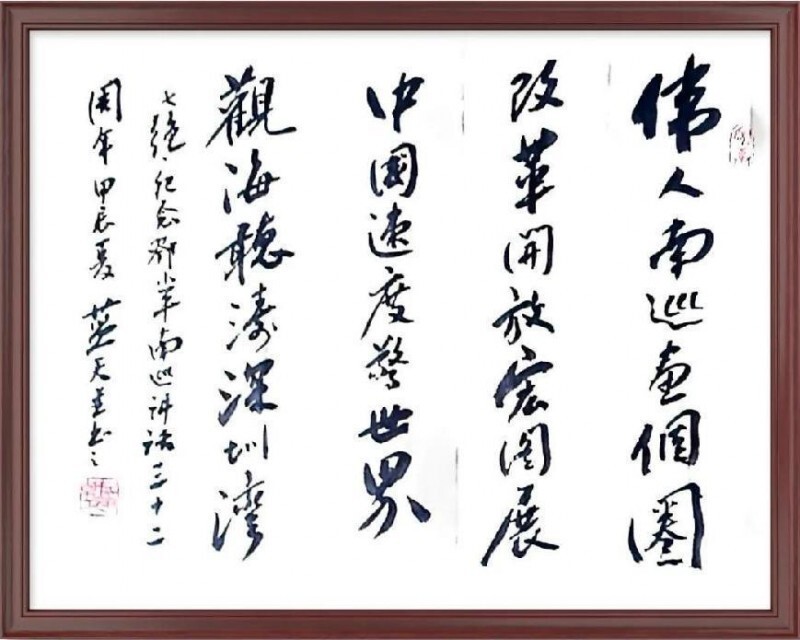 偉人南巡畫個圈
改革開放宏图展
中國速度驚世界
觀海聽濤深圳灣
七绝·纪念邓小平南巡讲话三十二
周年甲辰夏蓝天